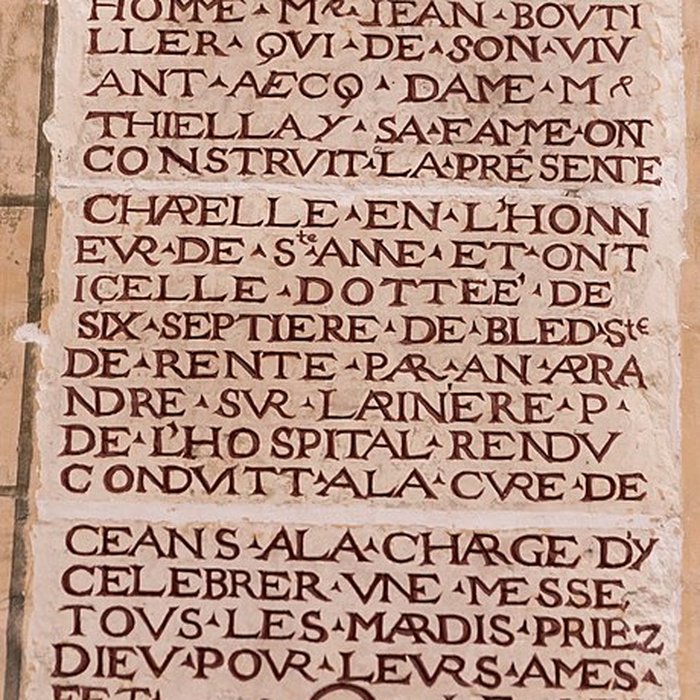 HOMME ▴ Mr ▴ JEAN ▴ BOVTI
LLER ▴ QVI ▴ DE ▴ SON ▴ VIV
ANT ▴ AECQ ▴ DAME ▴ M
THIELLAY ▴ SA ▴ FAME ▴ ONT
CONSTRVIT ▴ LA ▴ PRÉSENTE
CHAPELLE ▴ EN ▴ L'HONN
EVR ▴ DE ▴ Ste ▴ ANNE ▴ ET ▴ ONT
ICELLE ▴ DOTTEÉ ▴ DE
SIX ▴ SEPTIERE ▴ DE ▴ BLED ▴ Ste
DE ▴ RENTE ▴ PAR ▴ AN ▴ APRA
NDRE ▴ SVR ▴ P ▴
DE ▴ L'HOSPITAL ▴ RENDV
CONDVITT ▴ A LA ▴ CVRE ▴ DE
CEANS ▴ A LA ▴ CHARGE D'Y
CELEBRER ▴ VNE ▴ MESSE
TOVS ▴ LES ▴ MARDIS ▴ PRIEZ
DIEV ▴ POVR ▴ LEVRS ▴ AMES ▴